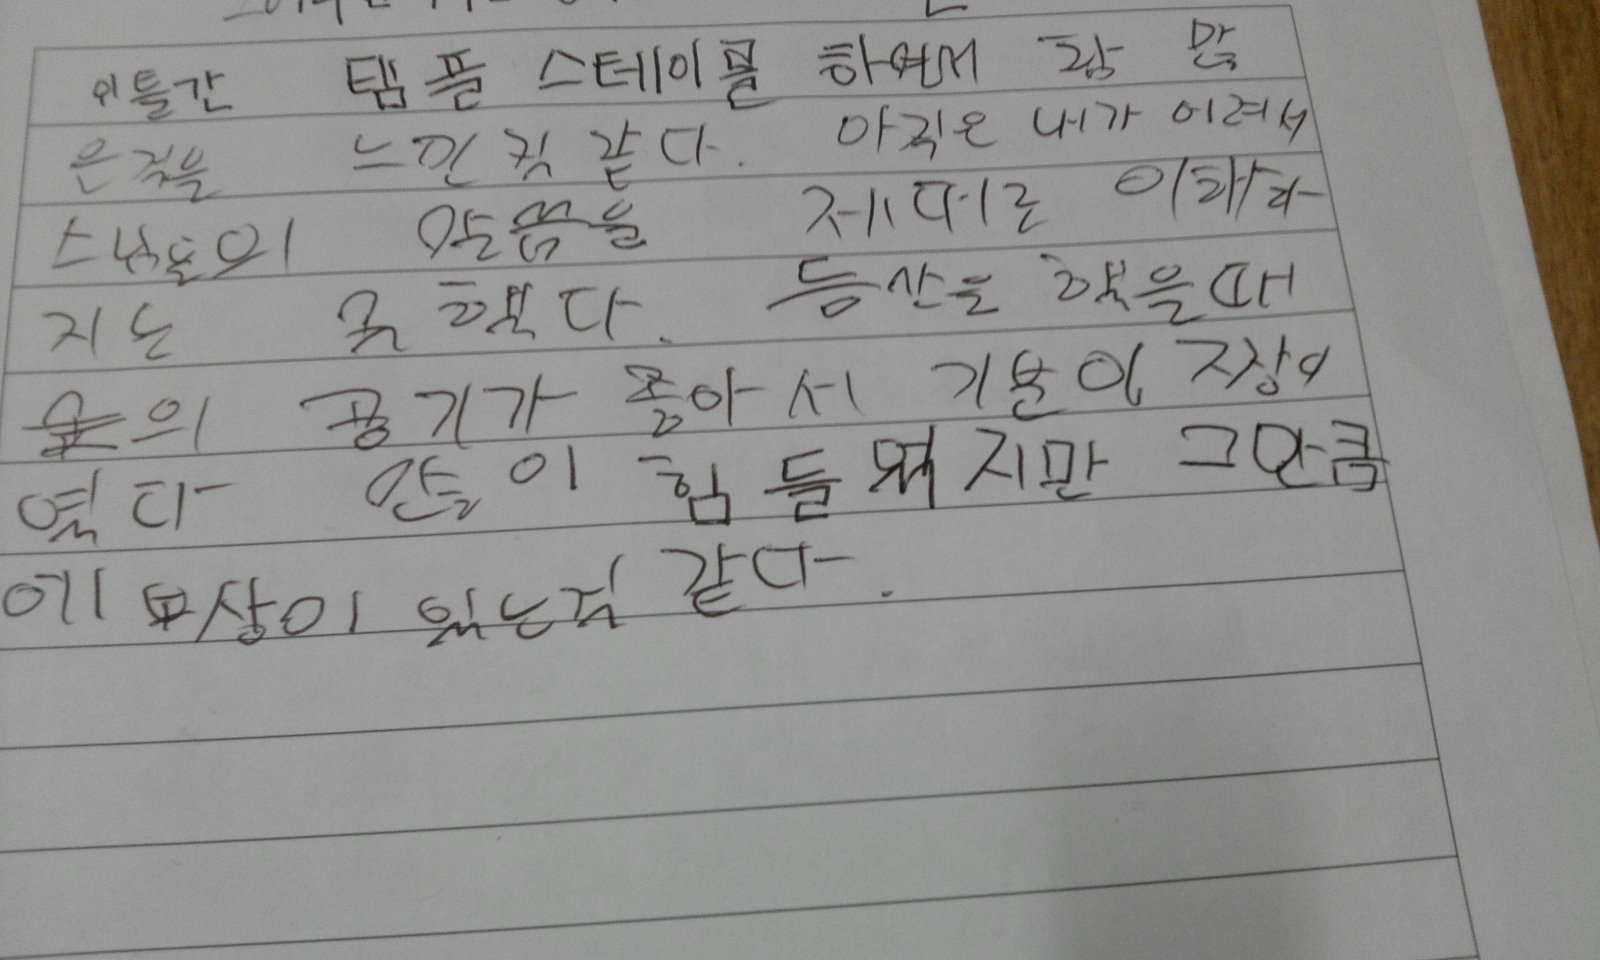 이틀간 템플 스테이를 하여서 참 많
은것을 느낀것 같다. 아직은 내가 어려서
스님들의 말씀을 제대로 이해하
지는 못했다. 등산을 했을때
숲의 공기가 좋아서 기분이 최상이
였다 많이 힘들웠지만 그만큼
에 보상이 있는것 같다.